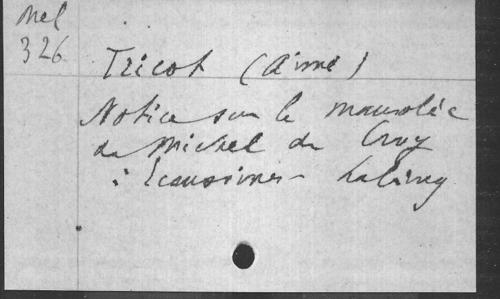 Mel
326
Tricot (Aimé)
Notice sur le mausolée
de Michel de Croy
à Ecaussines - Lalaing